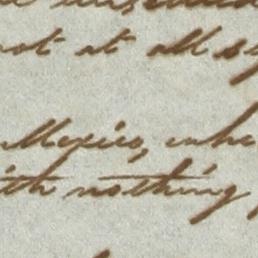 not at all
Mexico, whe
ith nothing